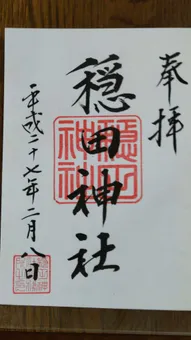 奉拝
穏田神社
平成二十七年二月八日
穏田
神社